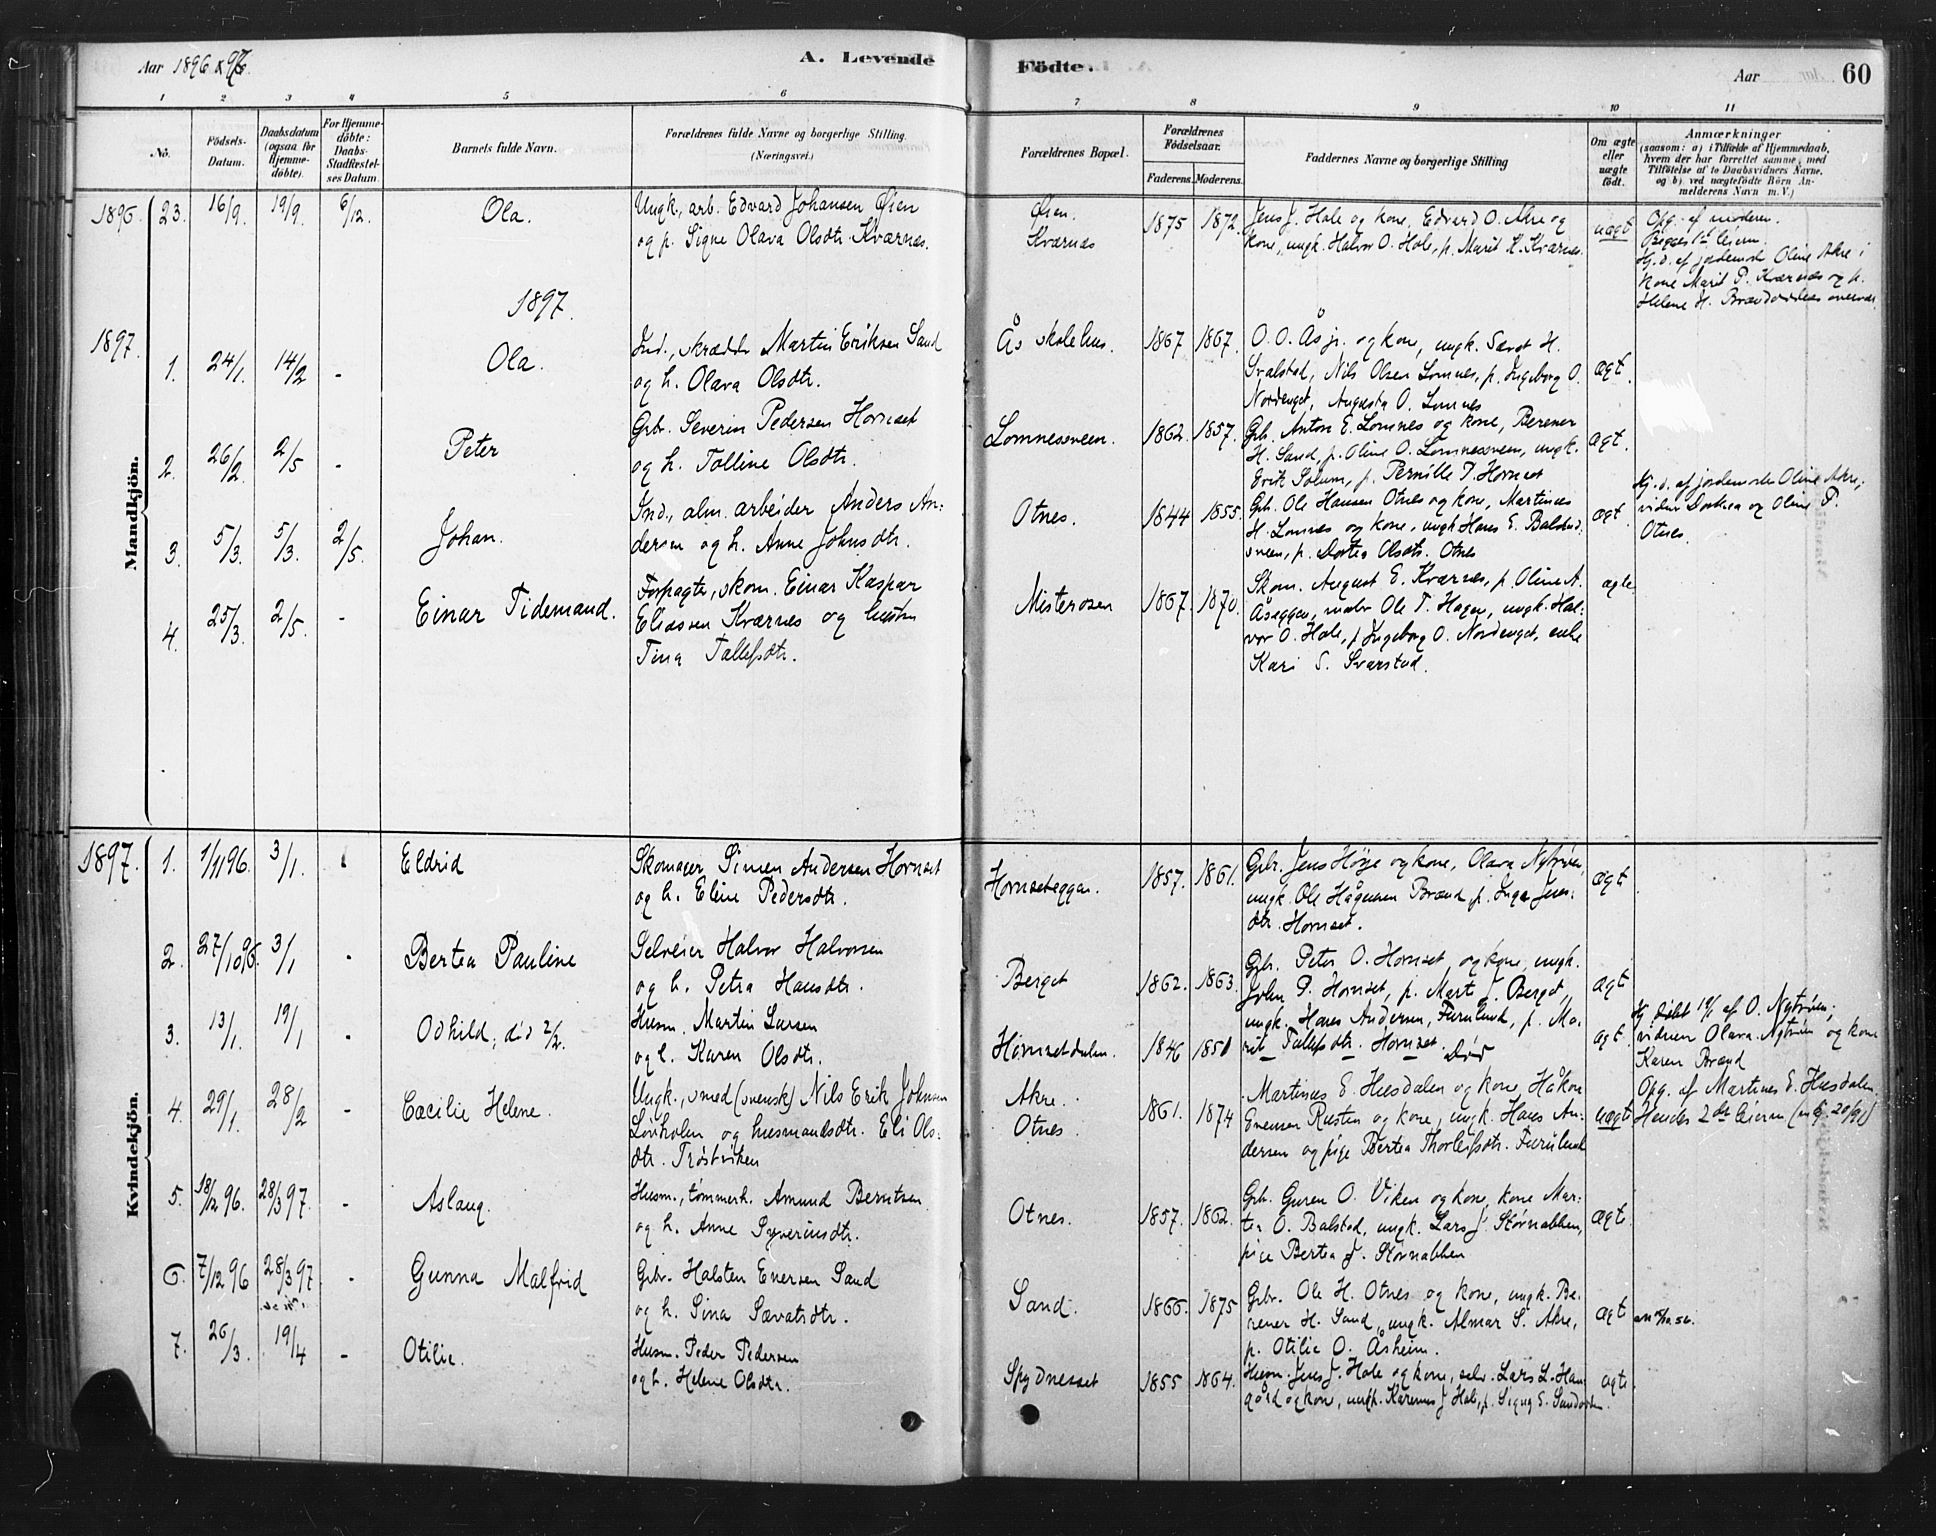 Aar 1896 & 97.
A. Levende
Födte.
Aar
60
1 2 3 4 5 6 7 8 9 10 11
No.
Födsels-
Datum.
Daabsdatum
(ogsaa for
Hjemme-
döbte).
For Hjemme-
döbte:
Daabs-
Stadfæstel-
ses Datum.
Barnets fulde Navn.
Forældrenes fulde Navne og borgerlige Stilling.
(Næringsvei.)
Forældrenes Bopæl.
Forældrenes
Födselsaar.
Faderens. Moderens.
Faddernes Navne og borgerlige Stilling
Om ægte
eller
uægte
födt.
Anmærkninger
(saasom: a) i Tilfælde af Hjemmedaab,
hvem der har forrettet samme, med
Tilföielse af to Daabsvidners Navne,
og b) ved uægtefödte Börn An-
melderens Navn m. V.)
Mandkjön.
1896. 23. 16/9. 19/9. 6/12. Ola.
Ungk., arb. Edvard Johansen Øien
og p. Signe Olava Olsdtr. Kværnes.
Øien.
Kværnes
1875 1872.
Jens J. Hole og kone, Edvard O. Akre og
kone, ungk. Halvor O. Hole, p. Marit K. Kværnes.
uægt
Opg. af moderen.
Begges 1ste leierm.
Hj. d. af jordemoder Oline Akre i
kone Marit P. Kværnes og p.
Helene H.
1897.
1897. 1. 24/1. 14/2 - Ola.
Ind., skrædder Martin Eriksen Sand
og h. Olava Olsdtr.
Ås skolehus.
1867 1867.
O. O. Ås jr. og kone, ungk. Sævat H.
Svalstad, Nils Olsen Lomnes, p. Ingeborg O.
Nordenget, Augusta O. Lomnes
ægt.
2. 26/2. 2/5 - Peter
Grbr. Severin Pedersen Hornset
og h. Tolline Olsdtr.
Lomnessveen.
1862. 1857.
Grb. Anton E. Lomnes og kone, Berener
H. Sand, p. Oline O. Lomnessveen, ungk.
Erik Solum, p. Pernille P. Hornset
ægt.
3. 5/3. 5/3. 2/5. Johan.
Ind., alm. arbeider Anders An-
dersen og h. Anne Johnsdtr.
Otnes.
1844 1855.
Grb. Ole Hansen Otnes og kone, Martinus
H. Lomnes og kone, ungk. Hans E. Balstad-
sveen, p. Dortea Olsdtr. Otnes
ægt.
Hj. d. af jordemoder Oline Akre;
vidner Dortea og Oline P.
Otnes.
4. 25/3. 2/5. - Einar Tidemand.
Forpagter, skom. Einar Kaspar
Eliassen Kværnes og hustru
Tina Tallefsdtr.
Misterosen
1867. 1870.
Skom. August E. Kværnes, p. Oline A.
Åseggen, maler Ole T. Hagen, ungk. Hal-
vor O. Hole, p. Ingeborg O. Nordenget, enke
Kari S. Svarstad.
ægte
Kvindekjön.
1897. 1. 1/11 96. 3/1. Eldrid
Skomager Simen Andersen Hornset
og h. Eline Pedersdtr.
Hornseteggen.
1857. 1861.
Grbr. Jens Høye og kone, Olava Nytrøen,
ungk. Ole Hågensen Brænd, p. Inga Jens-
dtr. Hornset.
ægt
2. 27/10 96. 3/1 - Bertea Pauline
Selveier Halvor Halvorsen
og h. Petra Hansdtr.
Berget
1862. 1863.
Grb. Peter O. Hornset og kone, ungk.
John P. Hornset, p. Mart J. Berget,
ungk. Hans Andersen, Furulund, p. Ma-
rit Tallefsdtr. Hornset.
ægt
3. 13/1. 19/1 - Odhild, død 2/2.
Husm. Martin Larsen
og h. Karen Olsdtr.
Hornsetdalen.
1846 1851
Død
ægt.
Hj. døbt 19/1 af O. Nytrøen;
vidner Olava Nytrøen og kone
Karen Brænd
4. 29/1. 28/2 - Cæcilie Helene.
Ungk., smed (svensk) Nils Erik Johnsen
Løvholen og husmandsdtr. Eli Ols-
dtr. Trøstviken
Akre.
Otnes.
1861. 1874
Martinus E. Husdalen og kone, Håkon
Evensen Rusten og kone, ungk. Hans An-
dersen og pige Bertea Thorleifsdtr. Furulund
uægt
Opg. af Martines E. Husdalen.
Hendes 2den leierm.
5. 18/12 96. 28/3 97. - Aslaug.
Husm., tømmerh. Amund Berntsen
og h. Anne Syverinsdtr.
Otnes.
1857. 1862.
Grb. Guren O. Viken og kone, kone Mar-
tea O. Balstad, ungk. Lars J. Størnabben,
pige Bertea J. Størnabben
ægt
6. 7/12 96 28/3 97. - Gunna Malfrid
Grbr. Halsten Enersen Sand
og h. Sina Sævatsdtr.
Sand.
1866. 1875
Grbr. Ole H. Otnes og kone, ungk. Be-
rener H. Sand, ungk. Almar S. Akre,
p. Otilie O. Åsheim.
ægt
7. 26/3. 19/4 - Otilie.
Husm. Peder Pedersen
og h. Helene Olsdtr.
Spydnesset
1855 1864.
Husm. Jens J. Hole og kone, selv. Lars L. Hau-
gård og kone, ungk. Karenus J. Hole, p. Signe E.
ægte